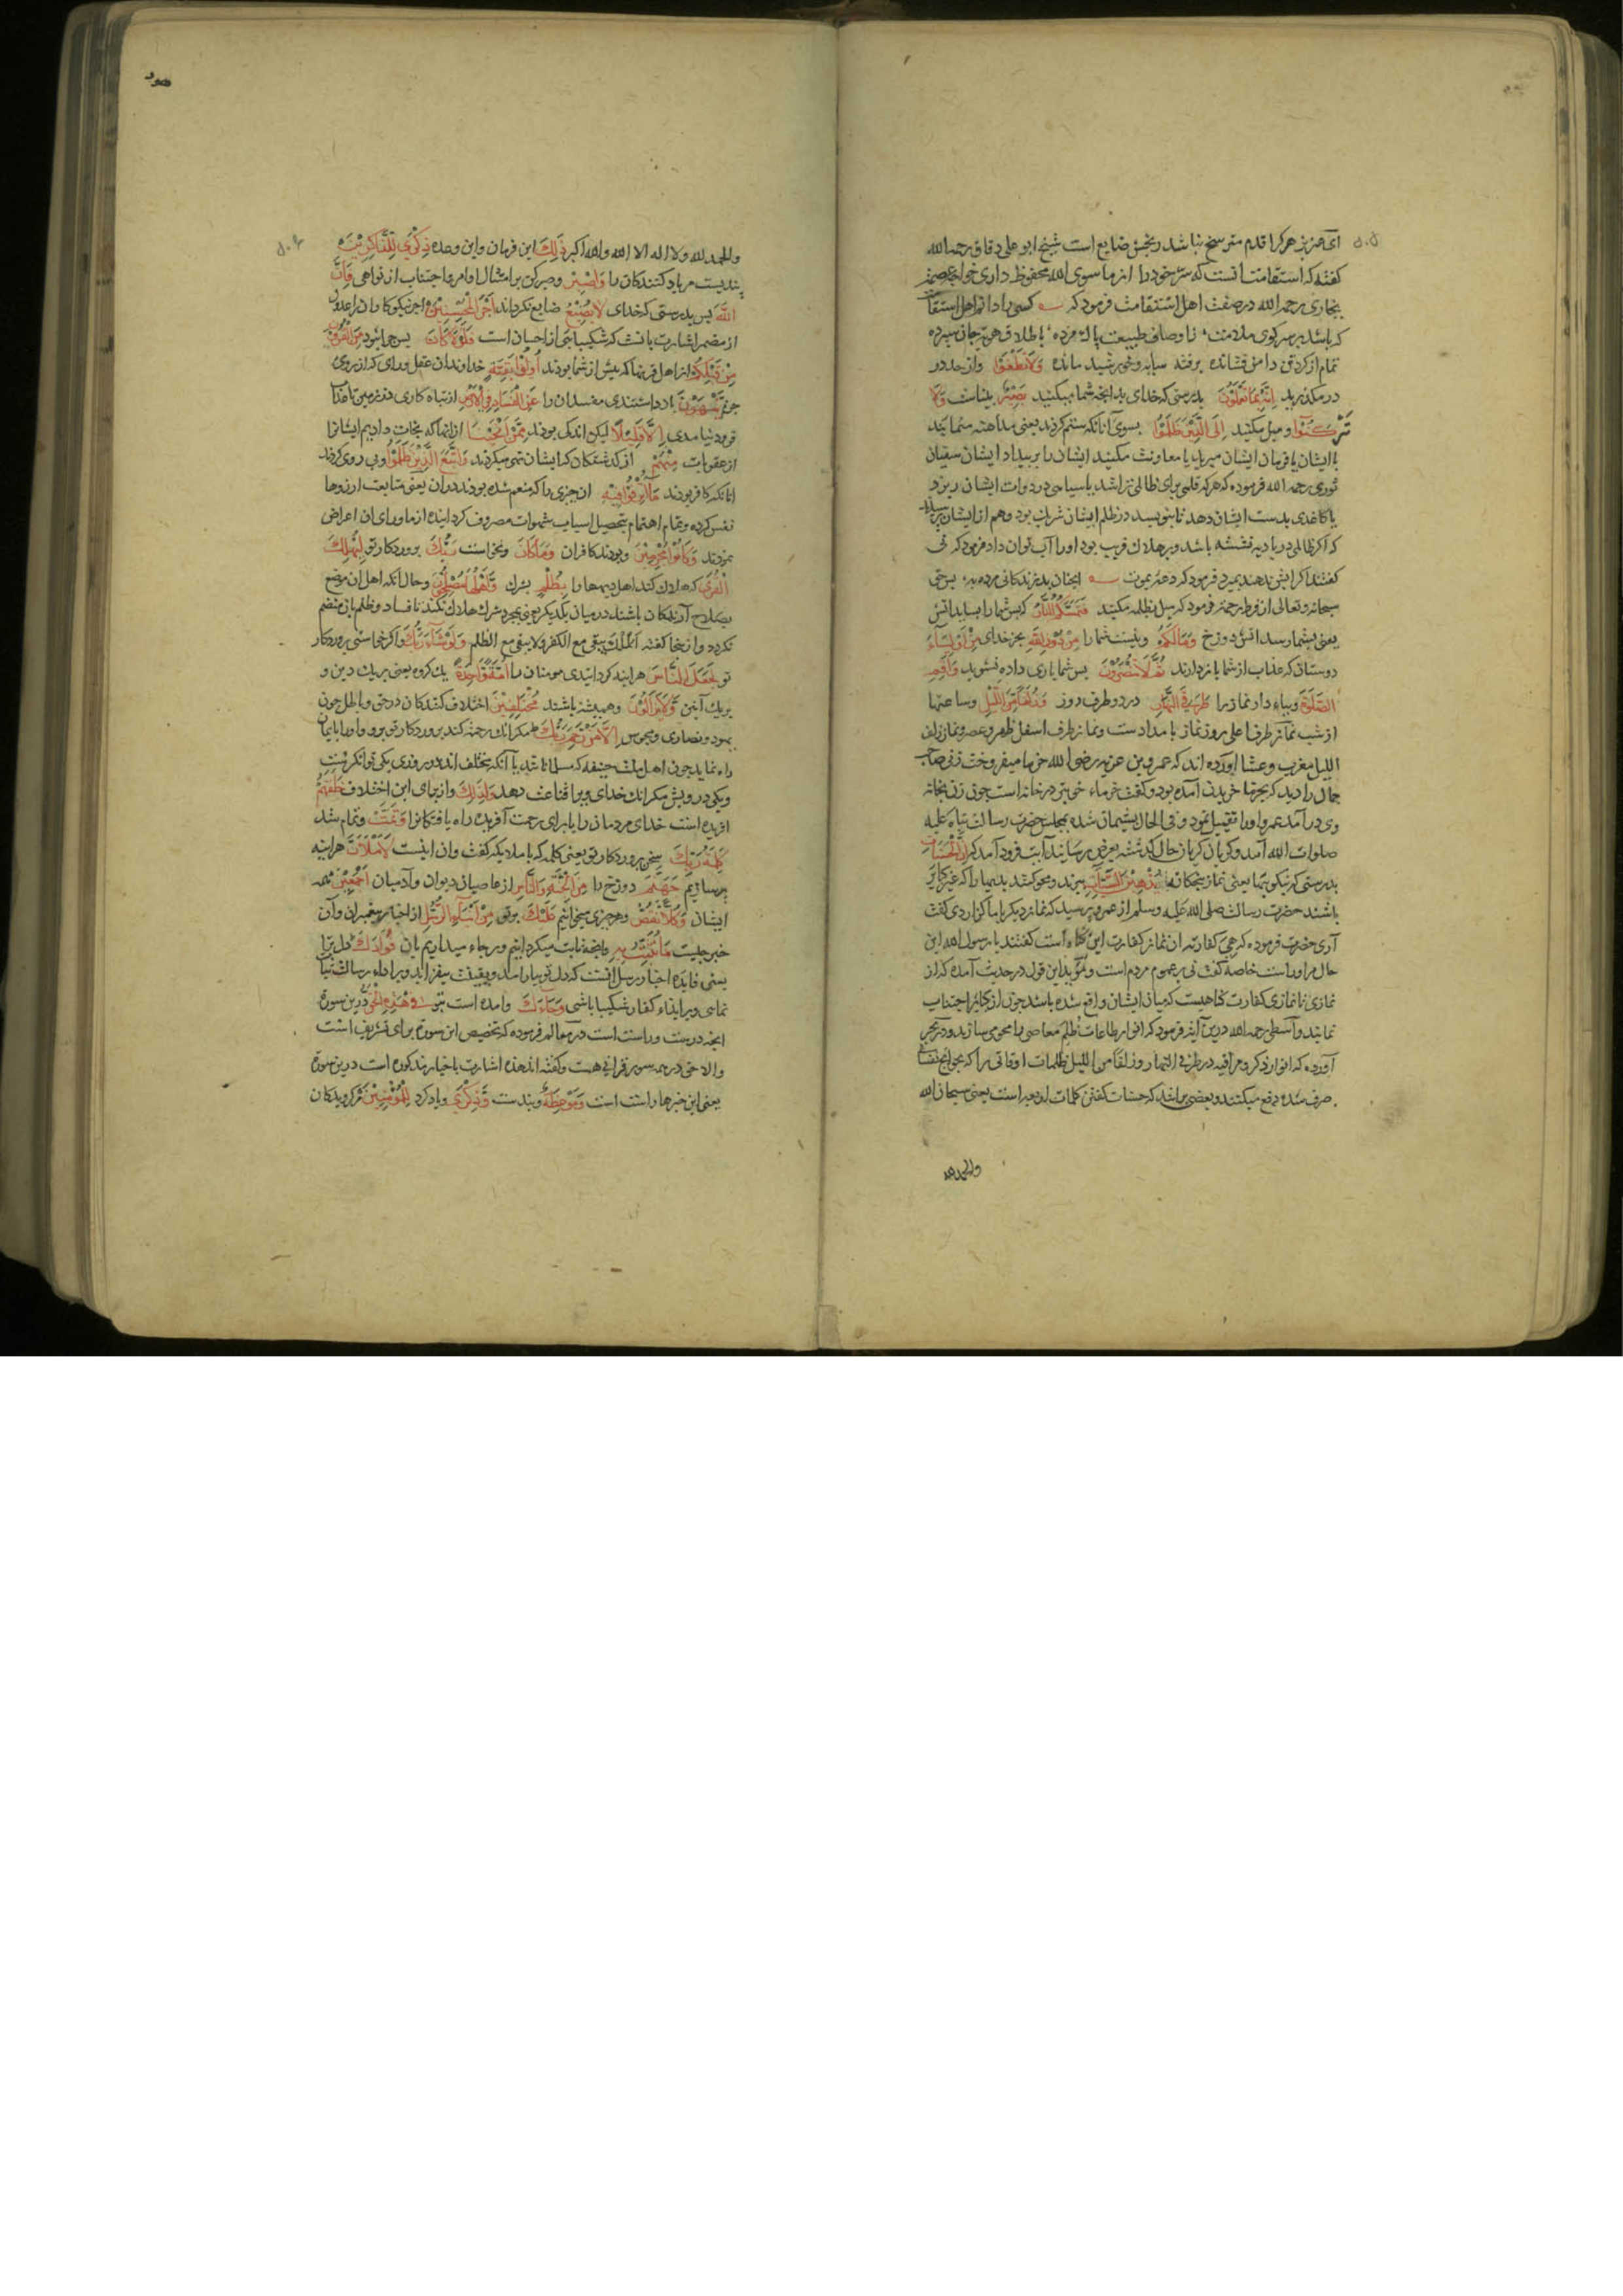 ای عزیز هر کرا قدم متر سخ نباشد رنجش ضایع است شیخ ابو علی دقاق رحمه الله
گفته که استقامت آنست که سر خود را از ما سوی الله محفوظ داری خواجه عصمة
بخاری رحمه الله در صفت اهل استقامت فرمود که کسی را دانم اهل استقامت
که باشد بر سر کوی ملامت ز اوصاف طبیعت پاک مرده باطلاق هویت جان سپرده
تمام از کردتن دامن فشانده برفته سایه و خورشید مانده وَلَا تَطْغَوْا واز حد در
در مکذرید إِنَّهُ بِمَا تَعْمَلُونَ بدرستی که خدای بدانچه شما میکنید بَصِيرٌ بیناست وَلَا
تَرْكَنُوا ومیل مکنید إِلَى الَّذِينَ ظَلَمُوا بسوی آنانکه ستم کردند یعنی مداهنه منمایید
با ایشان یا فرمان ایشان مبرید یا معاونت مکنید ایشان را بر بیداد ایشان سفیان
ثوری رحمه الله فرموده که هر که قلمی برای ظالمی تراشد یا سیاهی در دوات ایشان ریزد
یا کاغدی بدست ایشان دهد تا بنویسد در ظلم ایشان شریک بود وهم از ایشان پرسیدند
که اگر ظالمی در بادیه تشنه باشد وبر هلاک قریب بود او را آب توان داد فرمود که نی
گفتند اگر آبش ندهند بمیرد فرمود که دعه یموت انچنان بد زندکانی مرده به پس حق
سبحانه وتعالی از فرط رحمة فرمود که میل بظلمه مکنید فَتَمَسَّكُمُ النَّارُ که پس شما را بساید آتش
یعنی بشما رسد آتش دوزخ وَمَا لَكُمْ ونیست شما را مِنْ دُونِ اللَّهِ بجز خدای مِنْ أَوْلِيَاءَ
دوستان که عذاب از شما باز دارند ثُمَّ لَا تُنْصَرُونَ پس شما یاری داده نشوید وَأَقِمِ
الصَّلَوةَ وبپاء دار نماز را طَرَفَيِ النَّهَارِ در دو طرف روز وَزُلَفًا مِنَ اللَّيْلِ وساعتها
از شب نماز طرف اعلی روز نماز بامدادست ونماز طرف اسفل ظهر وعصر ونماز زلف
اللیل مغرب وعشا آورده اند که عمرو بن عزیه رضی الله خرما میفروخت زنی صاحب
جمال را دید که بخرما خریدن آمده بود وگفت خرماء خوبتر در خانه است چون زن بخانه
وی در آمد عمرو او را تقبیل نمود وفی الحال پشیمان شده بمجلس حضرت رسالت پناه علیه
صلوات الله آمد وگریان گریان حال گذشته بعرض رسانید آیت فرود آمد که إِنَّ الْحَسَنَاتِ
بدرستی که نیکوییها یعنی نماز پنجکانه يُذْهِبْنَ السَّيِّئَاتِ ببرند ومحو کنند بدیها را که غیر کبایر
باشند حضرت رسالت صلی الله علیه وسلم از عمرو پرسید که نماز دیکر با ما گزاردی گفت
آری حضرت فرموده که هی کفارته ان نماز کفارت این گناه است گفتند یا رسول الله این
حال مر او راست خاصه گفت نی بر عموم مردم است ومؤید این قول در حدیث آمده که از
نمازی تا نمازی کفارت گناهیست که میان ایشان واقع شده باشد چون از کبایر اجتناب
نمایند واسطی رحمه الله درین آیه فرمود که انوار طاعات ظلم معاصی را محو می سازد ودر بحر
آورده که انوار ذکر ومراقبه در طرفی النهار وزلفا من اللیل ظلمات اوقاتی را که بحوایج نفسانی
صرف شده دفع میکنند وبعضی برانند که حسنات گفتن کلمات اربعه است یعنی سبحان الله
والحمد لله
هود
والحمد لله ولا اله الا الله والله اکبر ذَلِكَ این فرمان واین وعده ذِكْرَى لِلذَّاكِرِينَ
پندیست مر یاد کنندکان را وَاصْبِرْ وصبر کن بر امتثال اوامر واجتناب از نواهی فَإِنَّ
اللَّهَ پس بدرستی که خدای لَا يُضِيعُ ضایع نکرداند أَجْرَ الْمُحْسِنِينَ اجر نیکوکاران را عدول
از مضمر اشارت بآنست که شکیبایی از احسان است فَلَوْلَا كَانَ پس چرا نبود مِنَ الْقُرُونِ
مِنْ قَبْلِكُمْ از اهل قرنها که پیش از شما بودند أُولُوا بَقِيَّةٍ خداوندان عقل ورای که از روی
يَنْهَوْنَ باز داشتندی مفسدان را عَنِ الْفَسَادِ فِي الْأَرْضِ از تباه کاری در زمین تا عذاب
فرود نیامدی إِلَّا قَلِيلًا لیکن اندکی بودند مِمَّنْ أَنْجَيْنَا از آنها که نجات دادیم ایشانرا
از عقوبات مِنْهُمْ از گذشتگان که ایشان نهی میکردند وَاتَّبَعَ الَّذِينَ ظَلَمُوا وپی روی کردند
آنانکه کافر بودند مَا أُتْرِفُوا فِيهِ ان چیزی را که منعم شده بودند در آن یعنی متابعت آرزوها
نفس کرده وتمام اهتمام بتحصیل اسباب شهوات مصروف کردانیده از ماورای ان اعراض
نمودند وَكَانُوا مُجْرِمِينَ وبودند کافران وَمَا كَانَ ونخواست رَبُّكَ پروردکار تو لِيُهْلِكَ
الْقُرَى که هلاک کند اهل دیهها را بِظُلْمٍ بشرک وَأَهْلُهَا مُصْلِحُونَ وحال آنکه اهل ان موضع
بصلاح آرندکان باشند در میان یکدیکر یعنی بمجرد شرک هلاک نکند تا فساد وظلم بآن منضم
نکردد واز ینجا گفته الملک یبقی مع الکفر ولا یبقی مع الظلم وَلَوْ شَاءَ رَبُّكَ واکر خواستی پروردکار
تو لَجَعَلَ النَّاسَ هراینه کردانیدی مومنان را أُمَّةً وَاحِدَةً یک گروه یعنی بر یک دین و
بر یک آیین وَلَا يَزَالُونَ وهمیشه باشند مُخْتَلِفِينَ اختلاف کنندکان در حق وباطل چون
یهود ونصاری ومجوس إِلَّا مَنْ رَحِمَ رَبُّكَ مکر انکه رحمت کند پروردکار تو برو واو را بایمان
راه نماید چون اهل ملت حنیفه که مسلمانانند یا آنکه مختلف اند در روزی یکی توانکر نیست
ویکی درویش مکر انکه خدای ویرا قناعت دهد وَلِذَلِكَ واز برای این اختلاف خَلَقَهُمْ
آفریده است خدای مردمان را یا برای رحمت آفریده راه یافتکانرا وَتَمَّتْ وتمام شد
كَلِمَةُ رَبِّكَ سخن پروردکار تو یعنی کلمه که با ملایکه گفت وان اینست لَأَمْلَأَنَّ هراینه
پر سازیم جَهَنَّمَ دوزخ را مِنَ الْجِنَّةِ وَالنَّاسِ از عاصیان دیوان وآدمیان أَجْمَعِينَ همه
ایشان وَكُلًّا نَقُصُّ وهر چیزی میخوانیم عَلَيْكَ بر تو مِنْ أَنْبَاءِ الرُّسُلِ از اخبار پیغمبران وآن
خبر چیست مَا نُثَبِّتُ بِهِ وانچه ثابت میکردانیم وبر جاء میداریم بان فُؤَادَكَ دل ترا
یعنی فایده اخبار رسل آنست که دل تو بیارامد ویقینت بیفزاید وبر اداء رسالت ثبات
نمایی وبر ایذاء کفار شکیبا باشی وَجَاءَكَ وآمده است بتو فِي هَذِهِ الْحَقُّ درین سورة
انچه درست وراست است در معالم فرموده که تخصیص این سورة برای تشریف است
والا حق در همه سور قرانی هست وگفته اند هذه اشارت باخبار مذکوره است درین سورة
یعنی این خبرها راست است وَمَوْعِظَةٌ وپندست وَذِكْرَى ویاد کرد لِلْمُؤْمِنِينَ مر گرویدکان